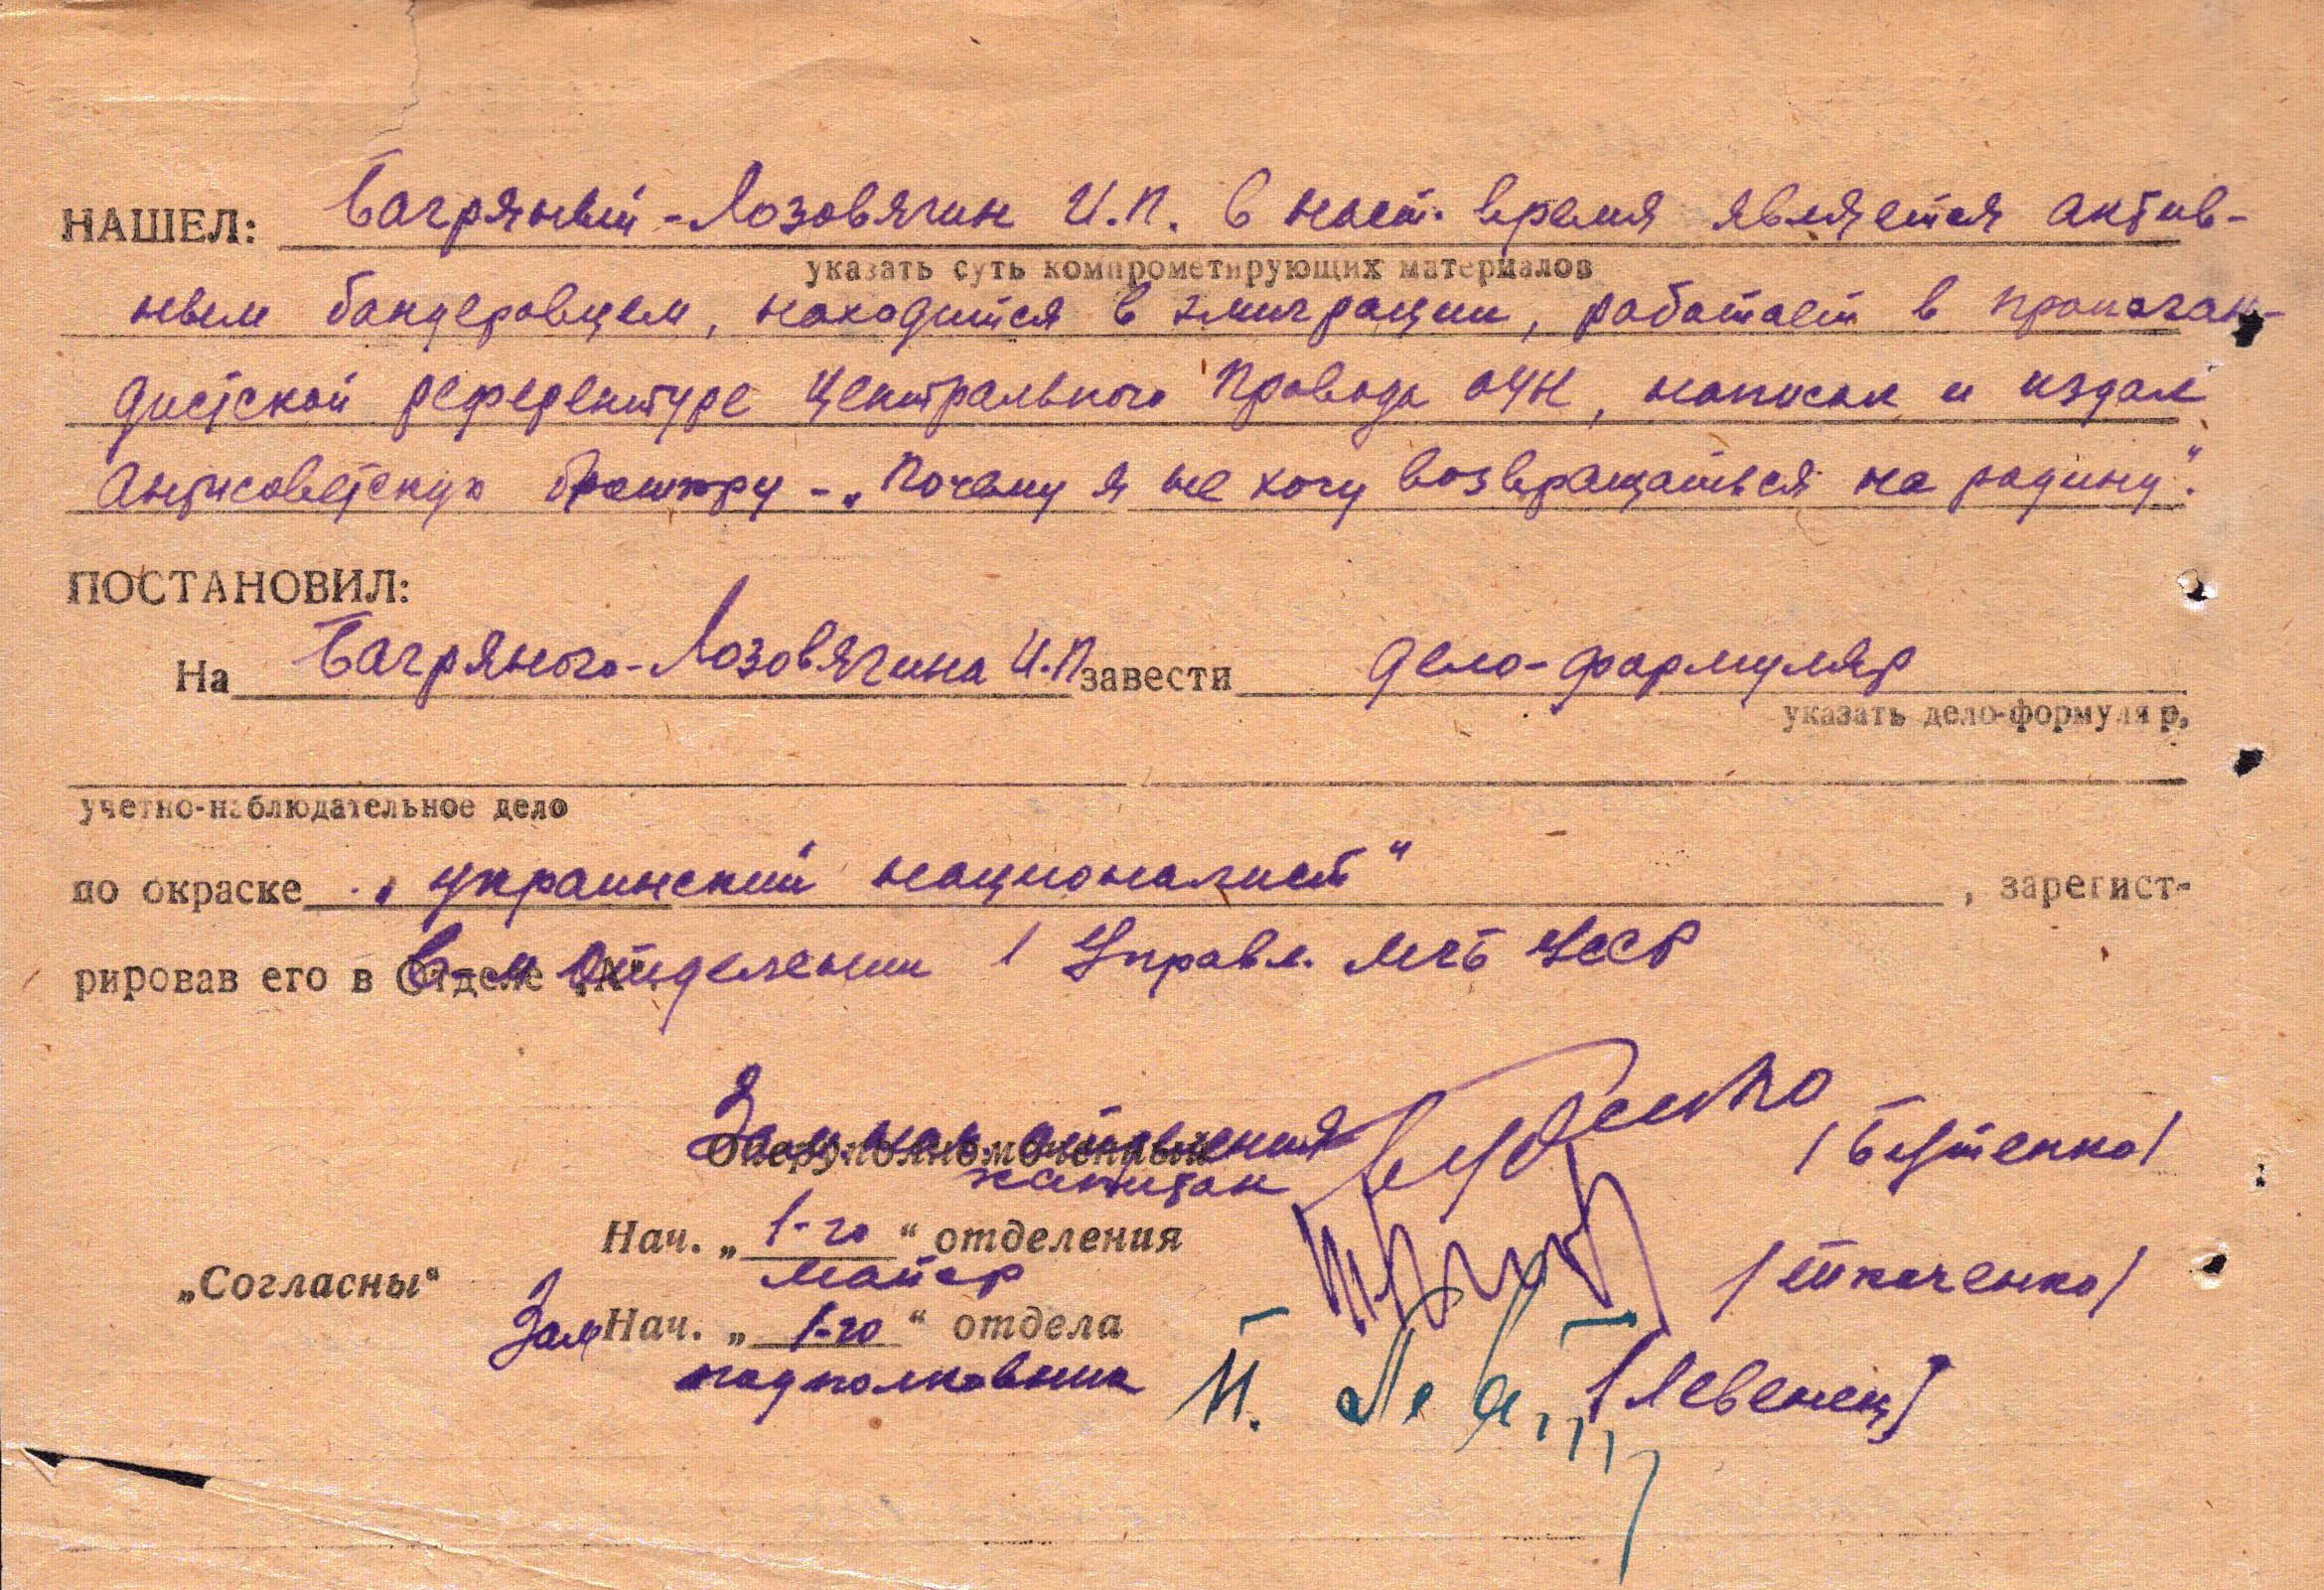 НАШЕЛ: Багряный-Лозовягин И.П. в наст. время является актив-
указать суть компрометирующих материалов
ным бандеровцем, находится в эмиграции, работает в пропаган-
дистской референтуре Центрального Провода ОУН, написал и издал
антисоветскую брошюру - „Почему я не хочу возвращаться на родину".
ПОСТАНОВИЛ:
На Багряного-Лозовягина И.П завести дело-формуляр
указать дело-формуляр,
учетно-наблюдательное дело
по окраске „украинский националист" , зарегист-
рировав его в Отделе отделении 1 Управл. МГБ УССР
Зам. нач. отделения
Оперуполномоченный
капитан /Бутенко/
Нач. „1-го" отделения
майор /Ткаченко/
„Согласны"
Зам Нач. „1-го" отдела
подполковник /Левенец/